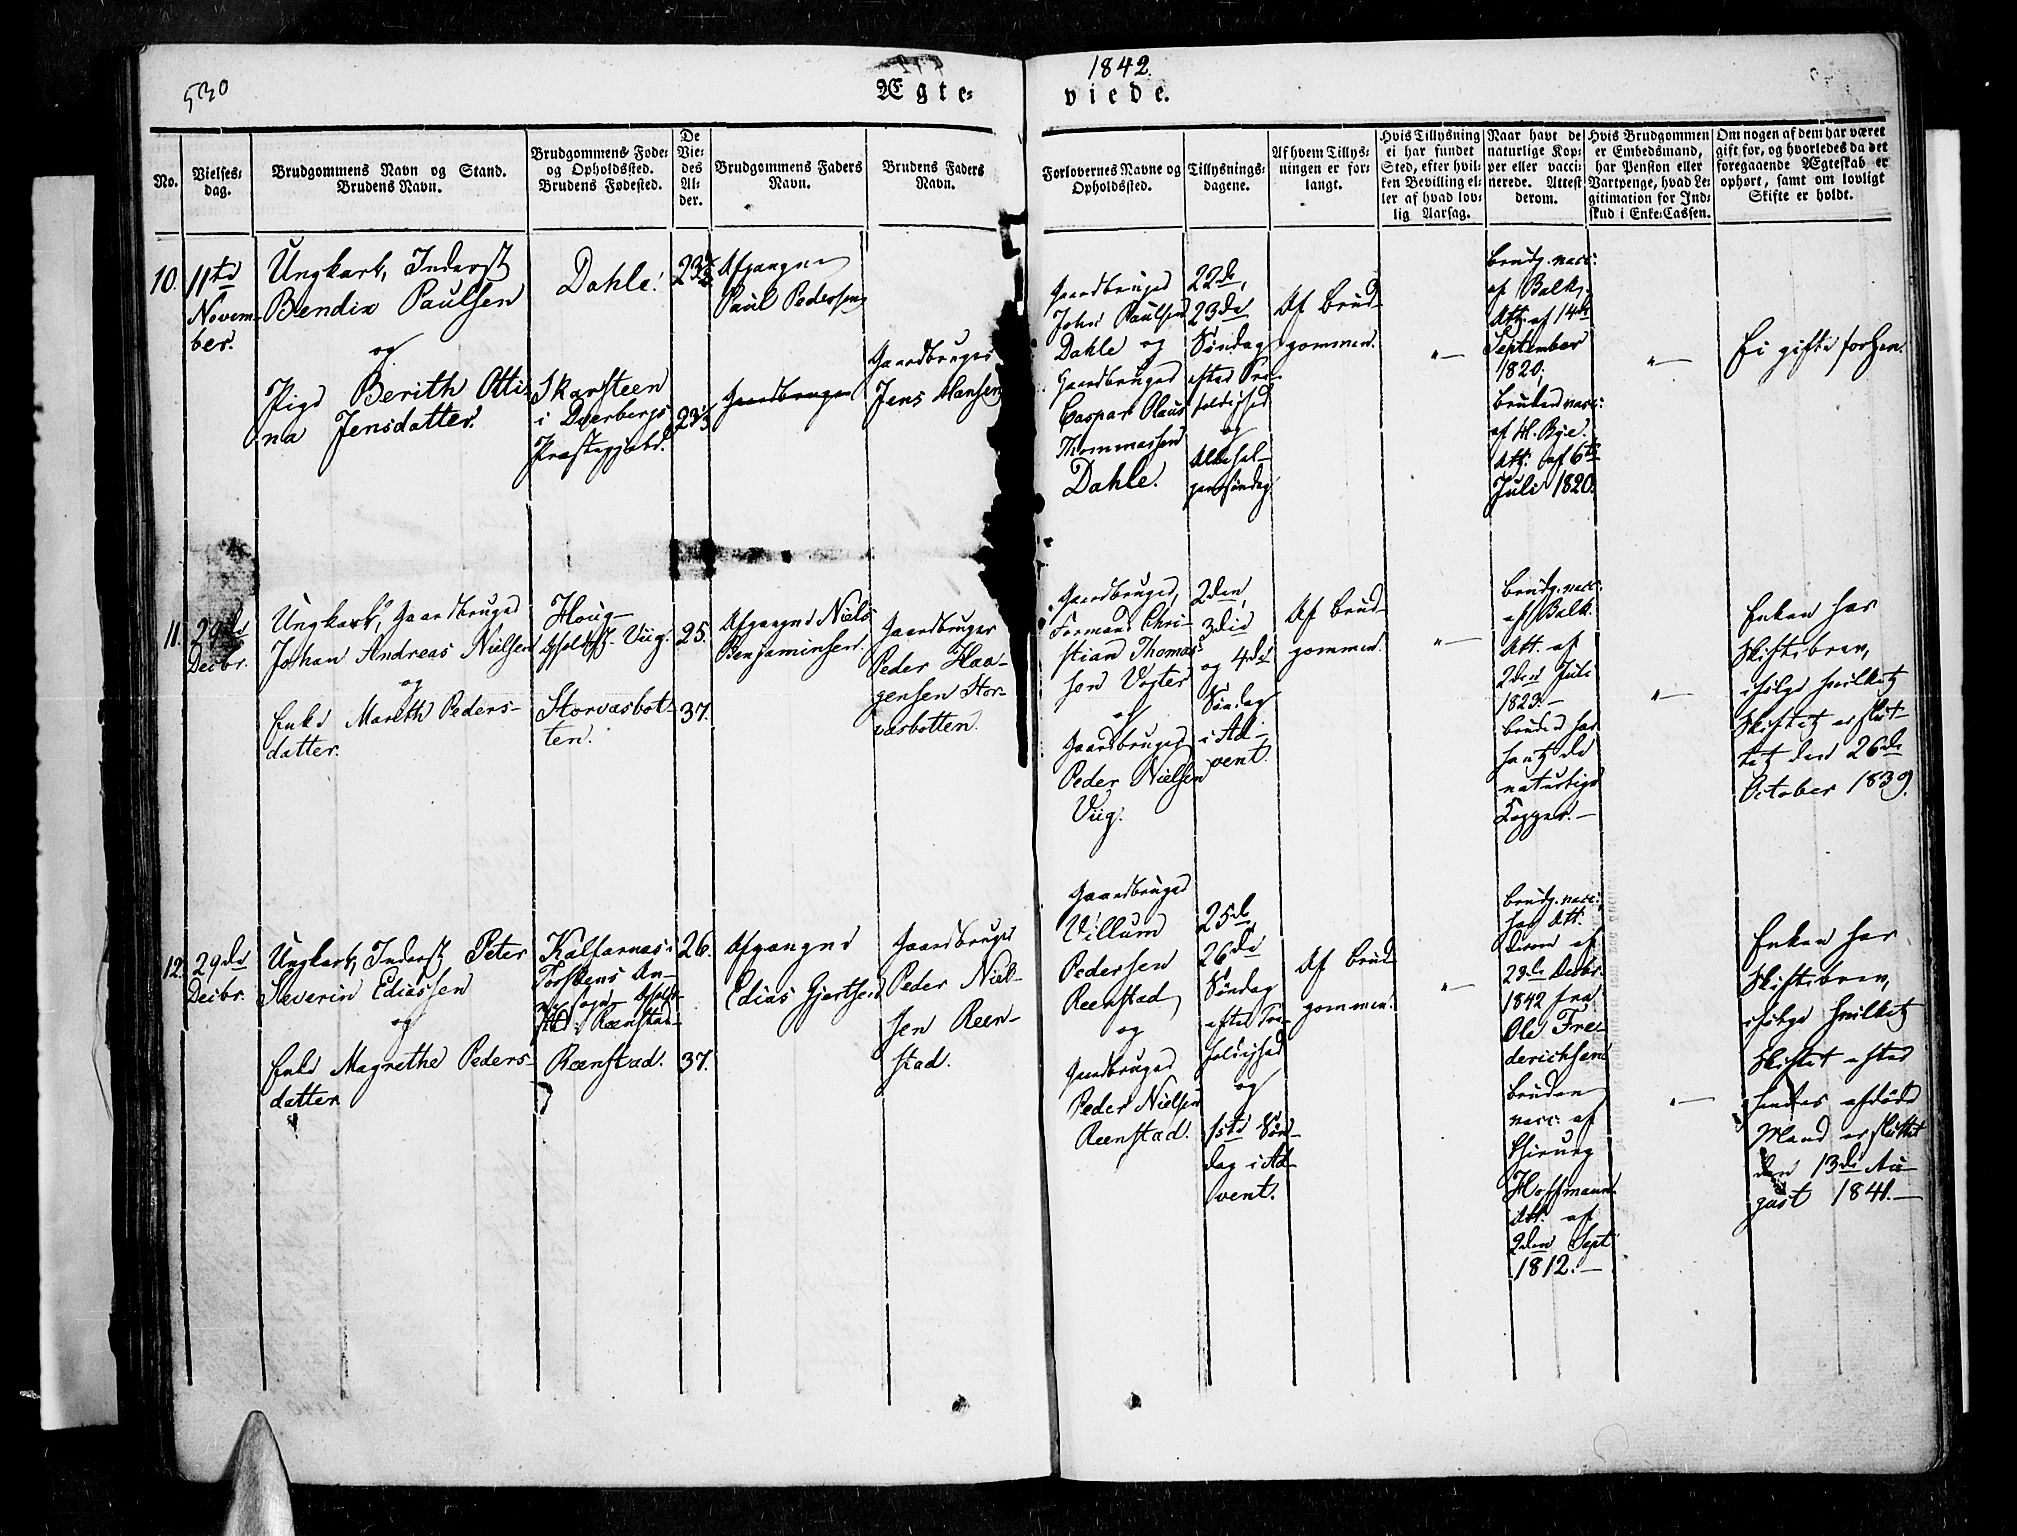 530
1842.
Ægte-
viede.
No.
Vielses-
dag.
Brudgommens Navn og Stand.
Brudens Navn.
Brudgommens Føde-
og Opholdssted.
Brudens Fødested.
De
Vie-
des
Al-
der.
Brudgommens Faders
Navn.
Brudens Faders
Navn.
Forlovernes Navne og
Opholdssted.
Tillysnings-
dagene.
Af hvem Tillys-
ningen er for-
langt.
Hvis Tillysning
ei har fundet
Sted, efter hvil-
ken Bevilling el-
ler af hvad lov-
lig Aarsag.
Naar havt de
naturlige Kop-
per eller vacci-
nerede. Attest
derom.
Hvis Brudgommen
er Embedsmand,
har Pension eller
Vartpenge, hvad Le-
gitimation for Ind-
skud i Enke-Cassen.
Om nogen af dem har været
gift før, og hvorledes da det
foregaaende Ægteskab er
ophørt, samt om lovligt
Skifte er holdt.
10.
11te
Novem-
ber.
Ungkarl, Inderst
Bendix Paulsen
og
Pige Berith Otti-
na Jensdatter.
Dahle.
Skarsteen
i Dverbergs
Præstegjæld.
23
23
Afgangne
Paul Pedersen
Gaardbruger
Gaardbruger
Jens Hansen
Gaardbruger
John Paulsen
Dahle og
Gaardbruger
Caspar Olaus
Thommassen
Dahle.
22de,
23de
Søndag
efter Tre-
foldighed
og
Allehel-
gensøndag
Af Brud-
gommen.
"
Brudg. vacc:
af Balk,
Att. af 14de
September
1820;
Bruden vacc:
af H. Bye.
Att. af 6te
Juli 1820.
"
Ei gifte forhen.
11.
29de
Decbr.
Ungkarl, Gaardbruger
Johan Andreas Nielsen
og
Enke Mareth Peders-
datter.
Houg-
Opholdst. Viig.
Storvasbot-
ten.
25.
37.
Afgangne Niels
Benjaminsen.
Gaardbruger
Peder Haa-
gensen Stor-
vasbotten.
Gaardbruger,
Formand Chri-
stian Thomas-
sen Vogter
og
Gaardbruger
Peder Nielsen
Viig.
2den,
3die
og 4de
Søndag
i Ad-
vent.
Af Brud-
gommen.
"
Brudg. vacc:
af Balk.
Att. af
2den Juli
1823.-
Bruden har
havt de
naturlige
Kopper.-
"
Enken har
Skiftebrev,
ifølge hvilket
Skiftet er slut-
tet den 26de
October 1839.
12.
29de
Decbr.
Ungkarl, Inderst Peter
Severin Ediassen
og
Enke Magrethe Peders-
datter
Kalfarnas i
Torskens An-
Sogn- Opholds-
sted: Reenstad-
Reenstad.
26.
37.
Afgangne
Edias Gjertsen
Gaardbruger
Peder Niel-
sen Reen-
stad.
Gaardbruger
Villum
Pedersen
Reenstad,
og
Gaardbruger
Peder Nielsen
Reenstad.
25de
26de
Søndag
efter Tre-
foldighed
og
1ste Søn-
dag i Ad-
vent.
Af Brud-
gommen.
"
Brudg. vacc:,
har Att.
derom af
29de Decbr.
1842 fra
Ole Fre-
derichsen
Bruden
vacc: af
Chirurg
Hoffmann.
Att. af
2den Sept
1812.-
"
Enken har
Skiftebrev,
ifølge hvilket
Skiftet efter
hendes afdøde
Mand er sluttet
den 13de Au-
gust 1841.-